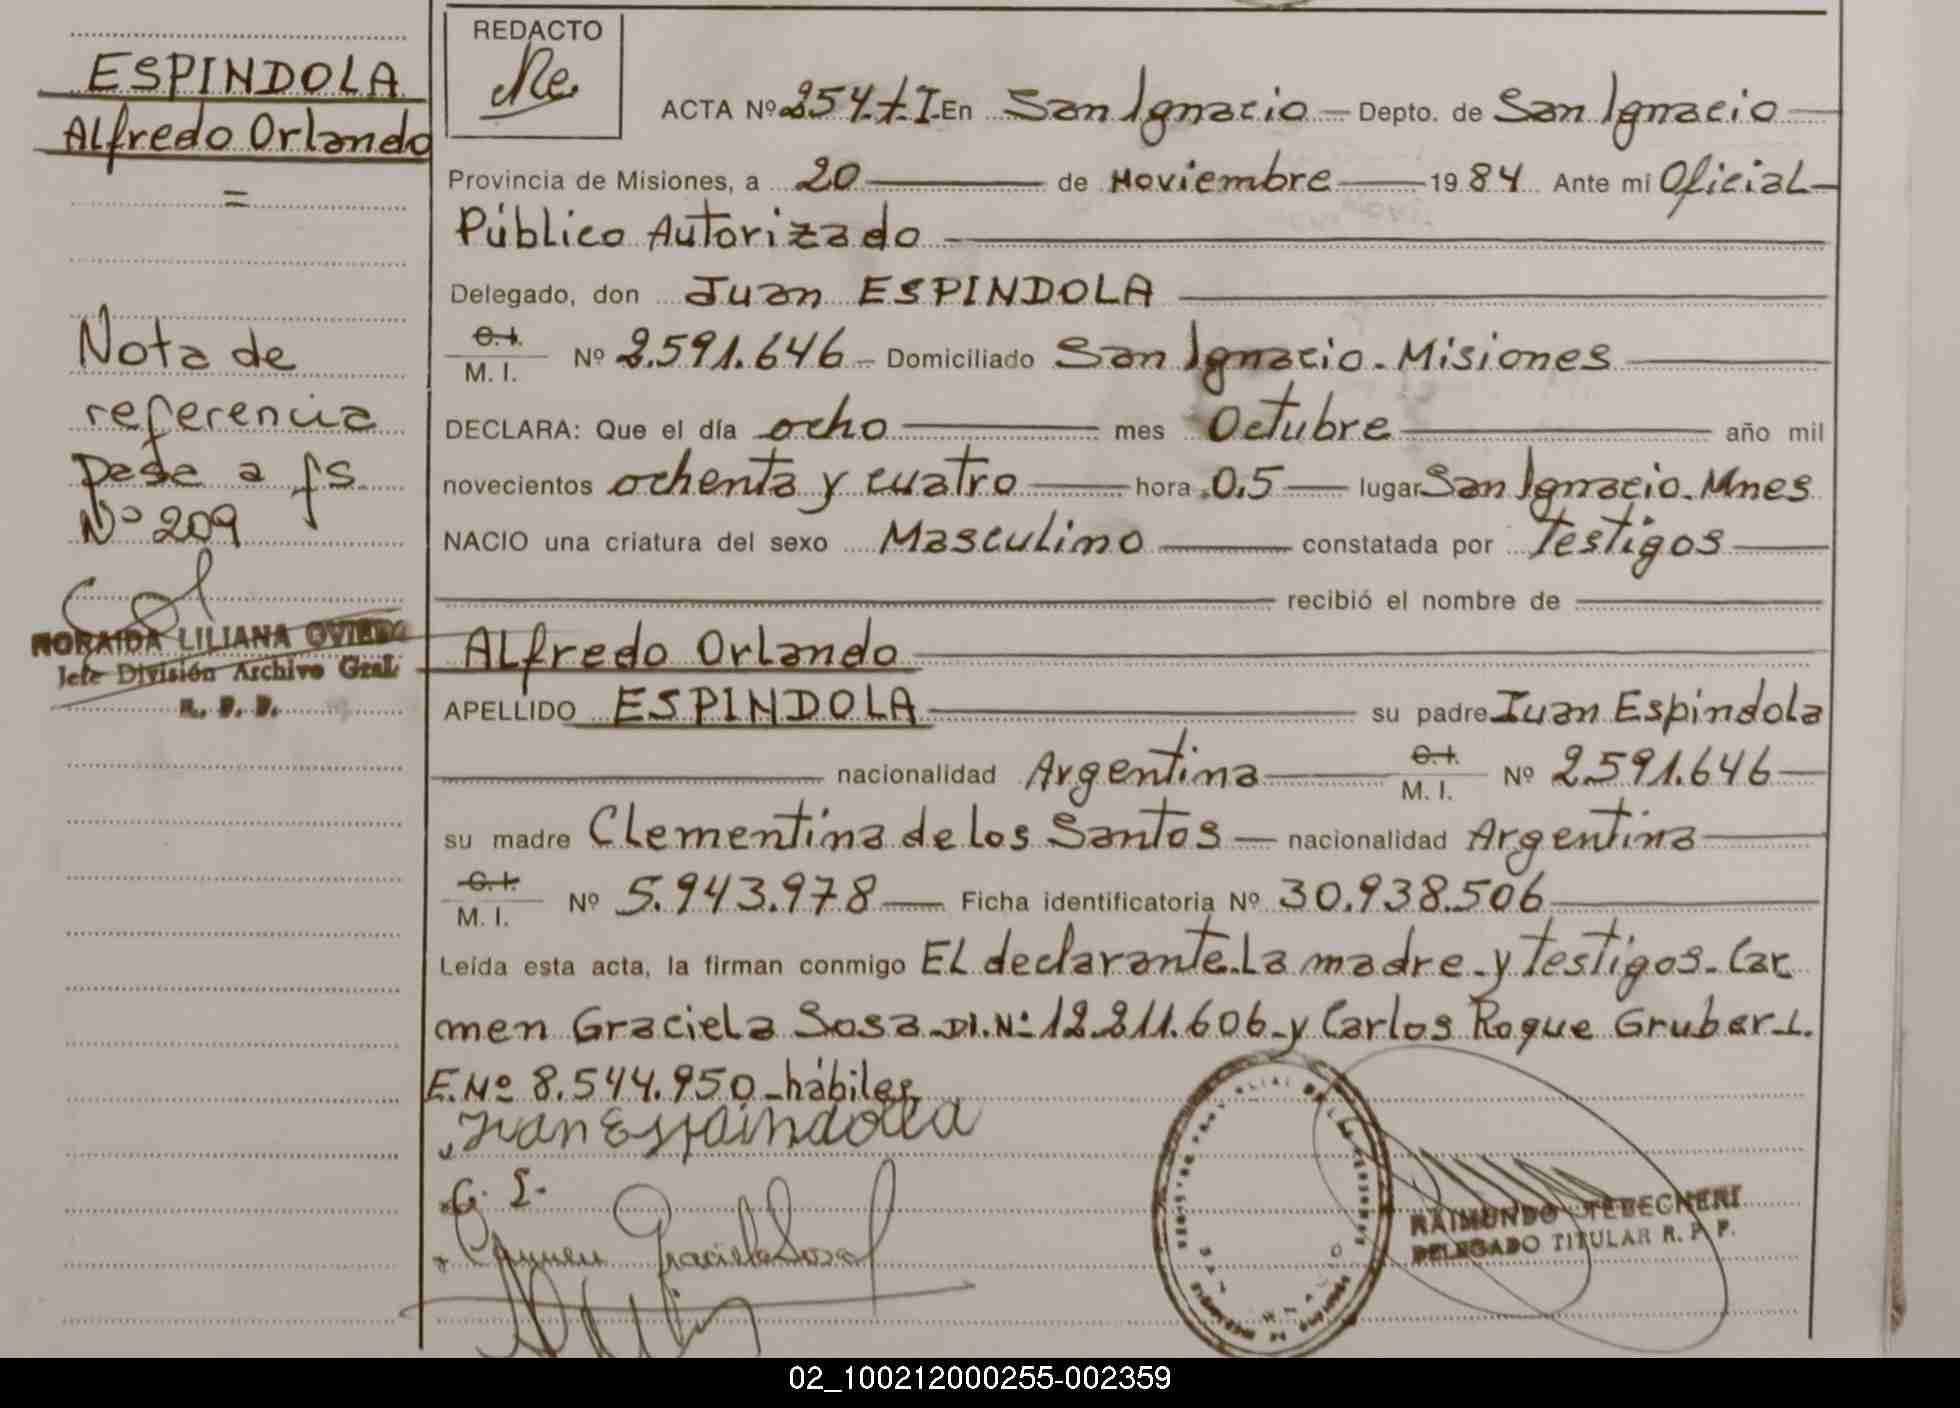 ESPINDOLA
Alfredo Orlando
=
Nota de
referencia
pasa a fs.
Nº 209
NORAIDA LILIANA OVIEDO
Jefe División Archivo Gral.
R. P. P.
REDACTO
ACTA Nº 254. t. I. En San Ignacio — Depto. de San Ignacio —
Provincia de Misiones, a 20 — de Noviembre — 1984 Ante mi Oficial
Público Autorizado —
Delegado, don Juan ESPINDOLA —
C.I.
M. I. Nº 2.591.646 — Domiciliado San Ignacio. Misiones —
DECLARA: Que el día ocho — mes Octubre — año mil
novecientos ochenta y cuatro — hora 0,5 — lugar San Ignacio. Mnes
NACIO una criatura del sexo Masculino — constatada por Testigos —
— recibió el nombre de —
Alfredo Orlando —
APELLIDO ESPINDOLA — su padre Juan Espindola
— nacionalidad Argentina — C.I. M. I. Nº 2.591.646 —
su madre Clementina de los Santos — nacionalidad Argentina —
C.I.
M. I. Nº 5.943.978 — Ficha identificatoria Nº 30.938.506 —
Leída esta acta, la firman conmigo EL declarante. La madre. y testigos. Car
men Graciela Sosa. DI. Nº 12.211.606. y Carlos Roque Gruber. L.
E. Nº 8.544.950 - hábiles
Juan Esspindola
Carmen Graciela Sosa
RAIMUNDO TEBECHERI
DELEGADO TITULAR R. P. P.
02_100212000255-002359